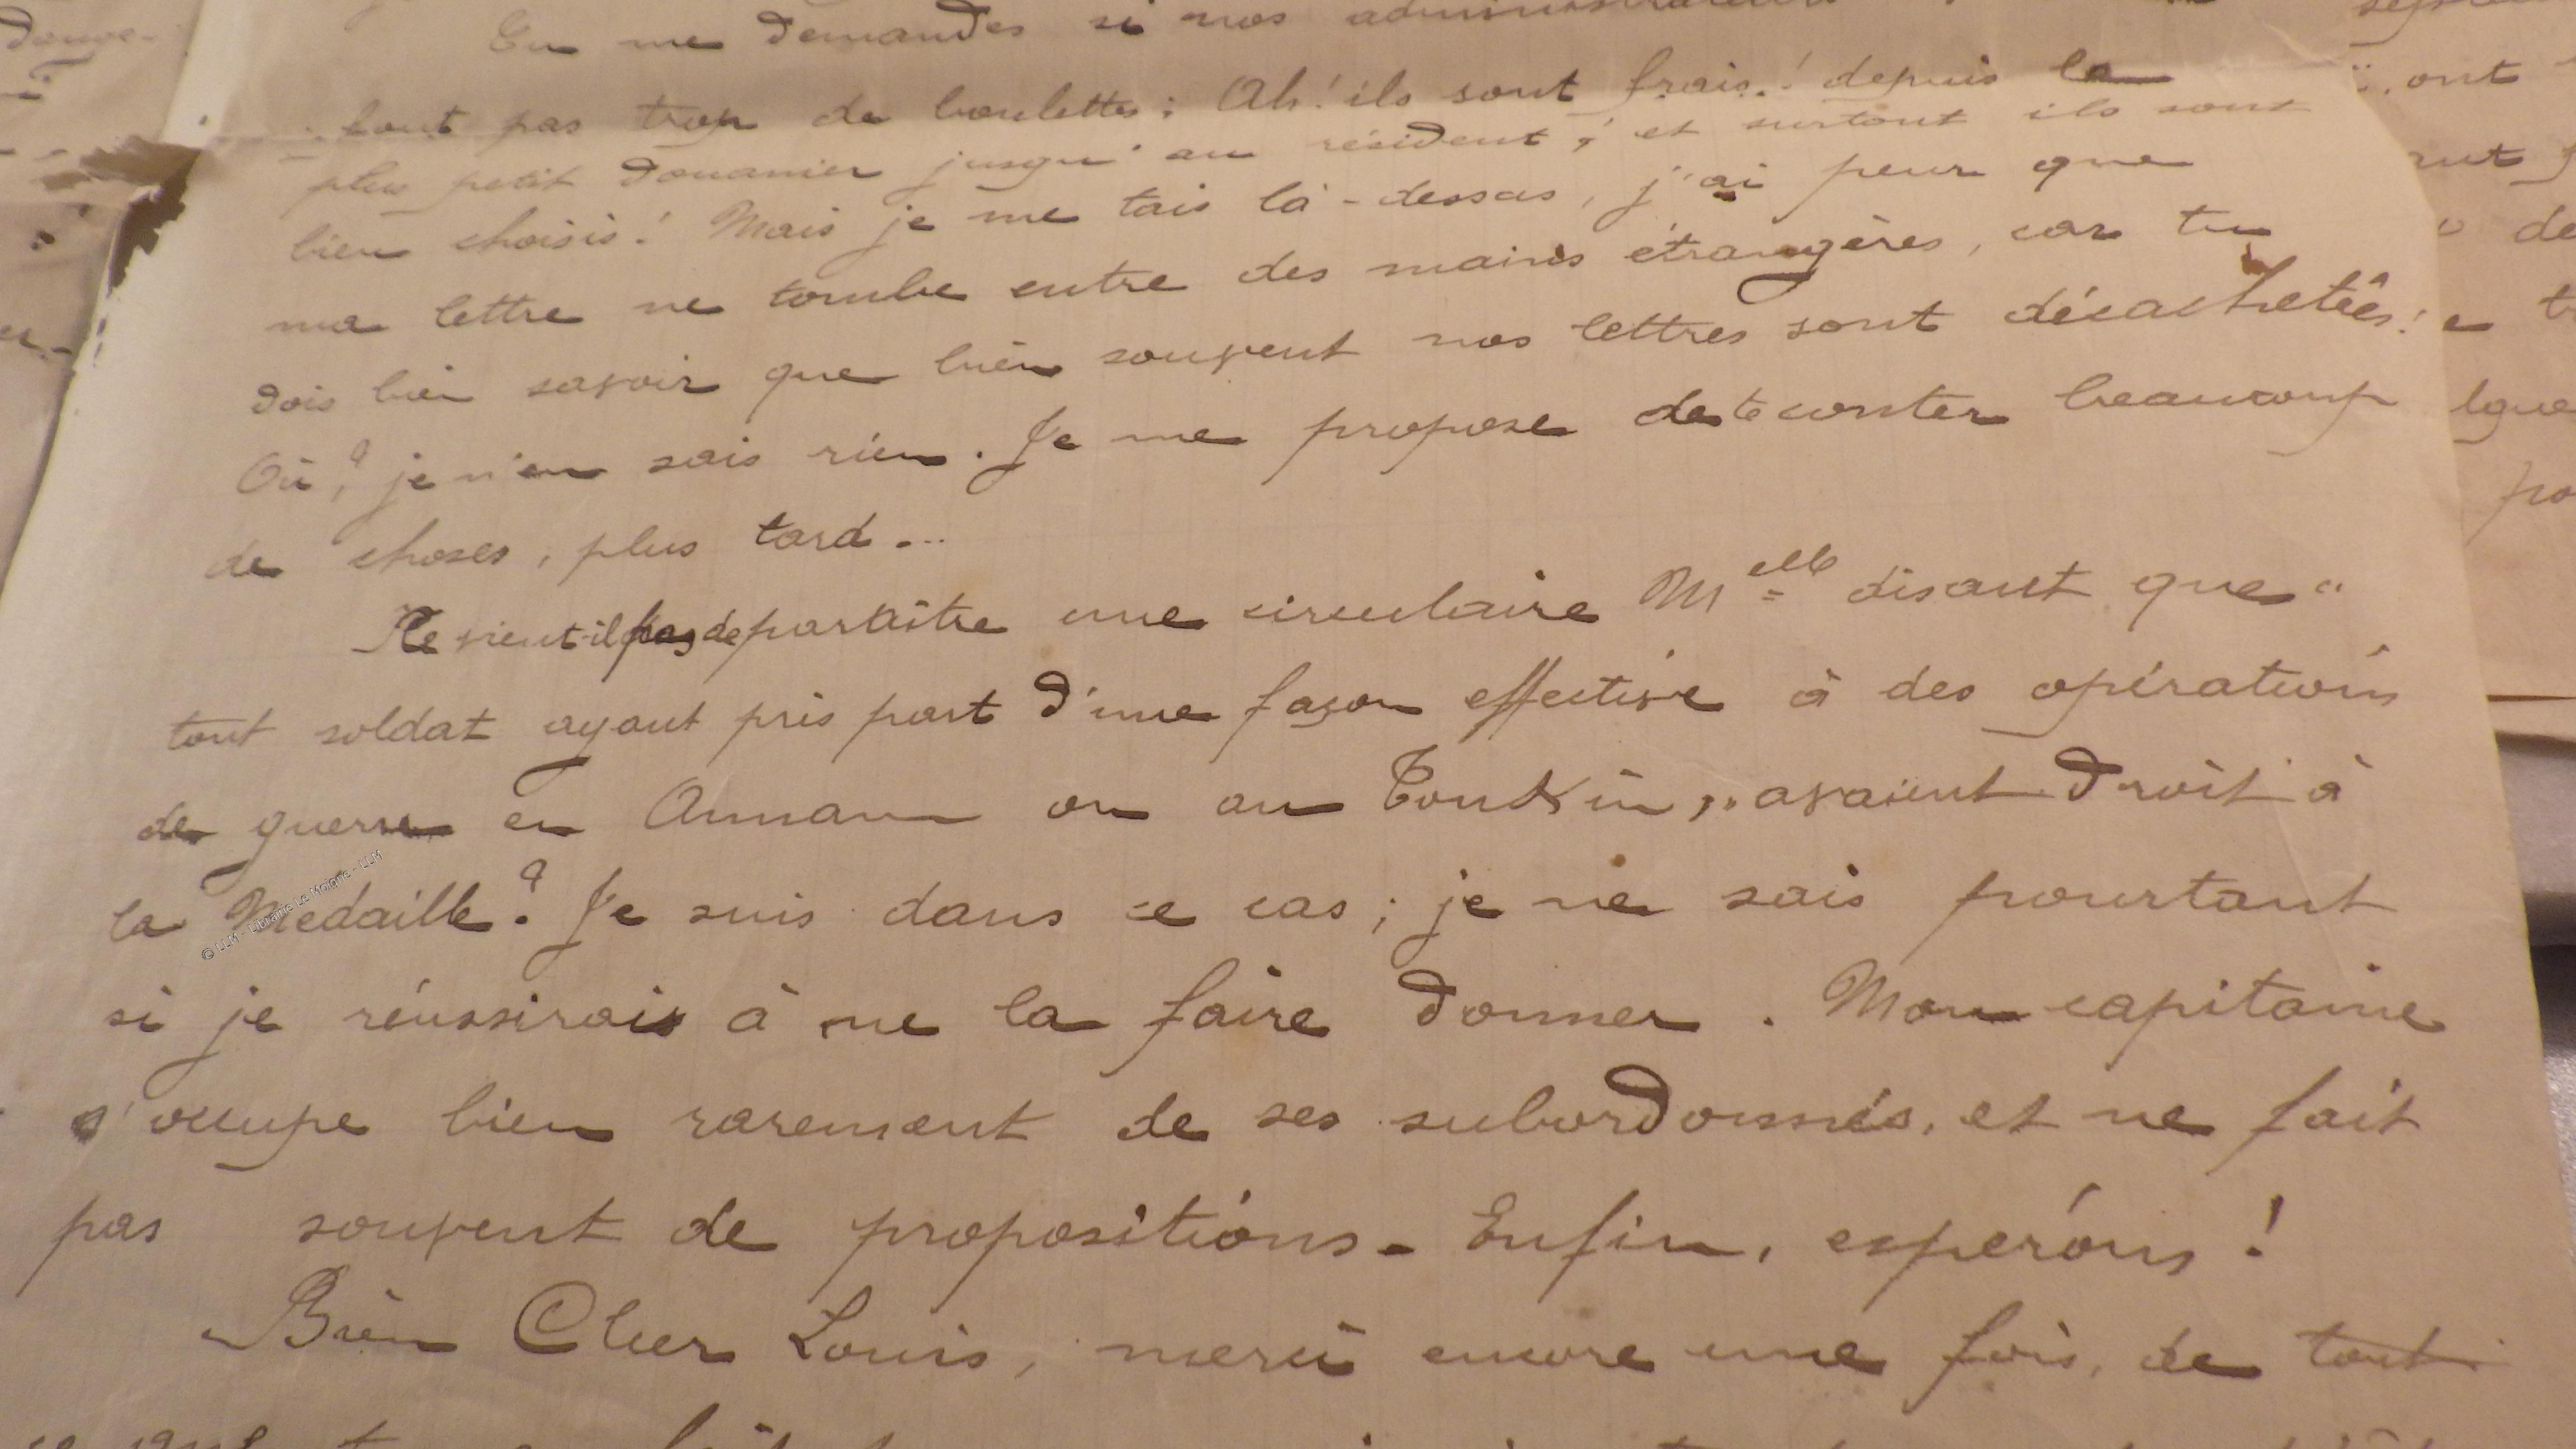 Tu me demandes si nos administrateurs
font pas trop de boulettes ; Ah ! ils sont frais ! depuis le
plus petit douanier jusqu'au résident ; et surtout ils sont
bien choisis ! Mais je me tais là-dessus, j'ai peur que
ma lettre ne tombe entre des mains étrangères, car tu
dois bien savoir que bien souvent nos lettres sont décachetées !
Où ? je n'en sais rien. Je me propose de te conter beaucoup
de choses, plus tard...
Ne vient-il pas de paraître une circulaire Melle disant que "
tout soldat ayant pris part d'une façon effective à des opérations
de guerre en Annam ou au Tonkin, " avaient droit à
la Medaille ? Je suis dans ce cas ; je ne sais pourtant
si je réussirais à me la faire donner. Mon capitaine
s'occupe bien rarement de ses subordonnés, et ne fait
pas souvent de propositions - Enfin, esperons !
Bien Cher Louis, merci encore une fois, de tout
© LLM - Librairie Le Moigne - LLM